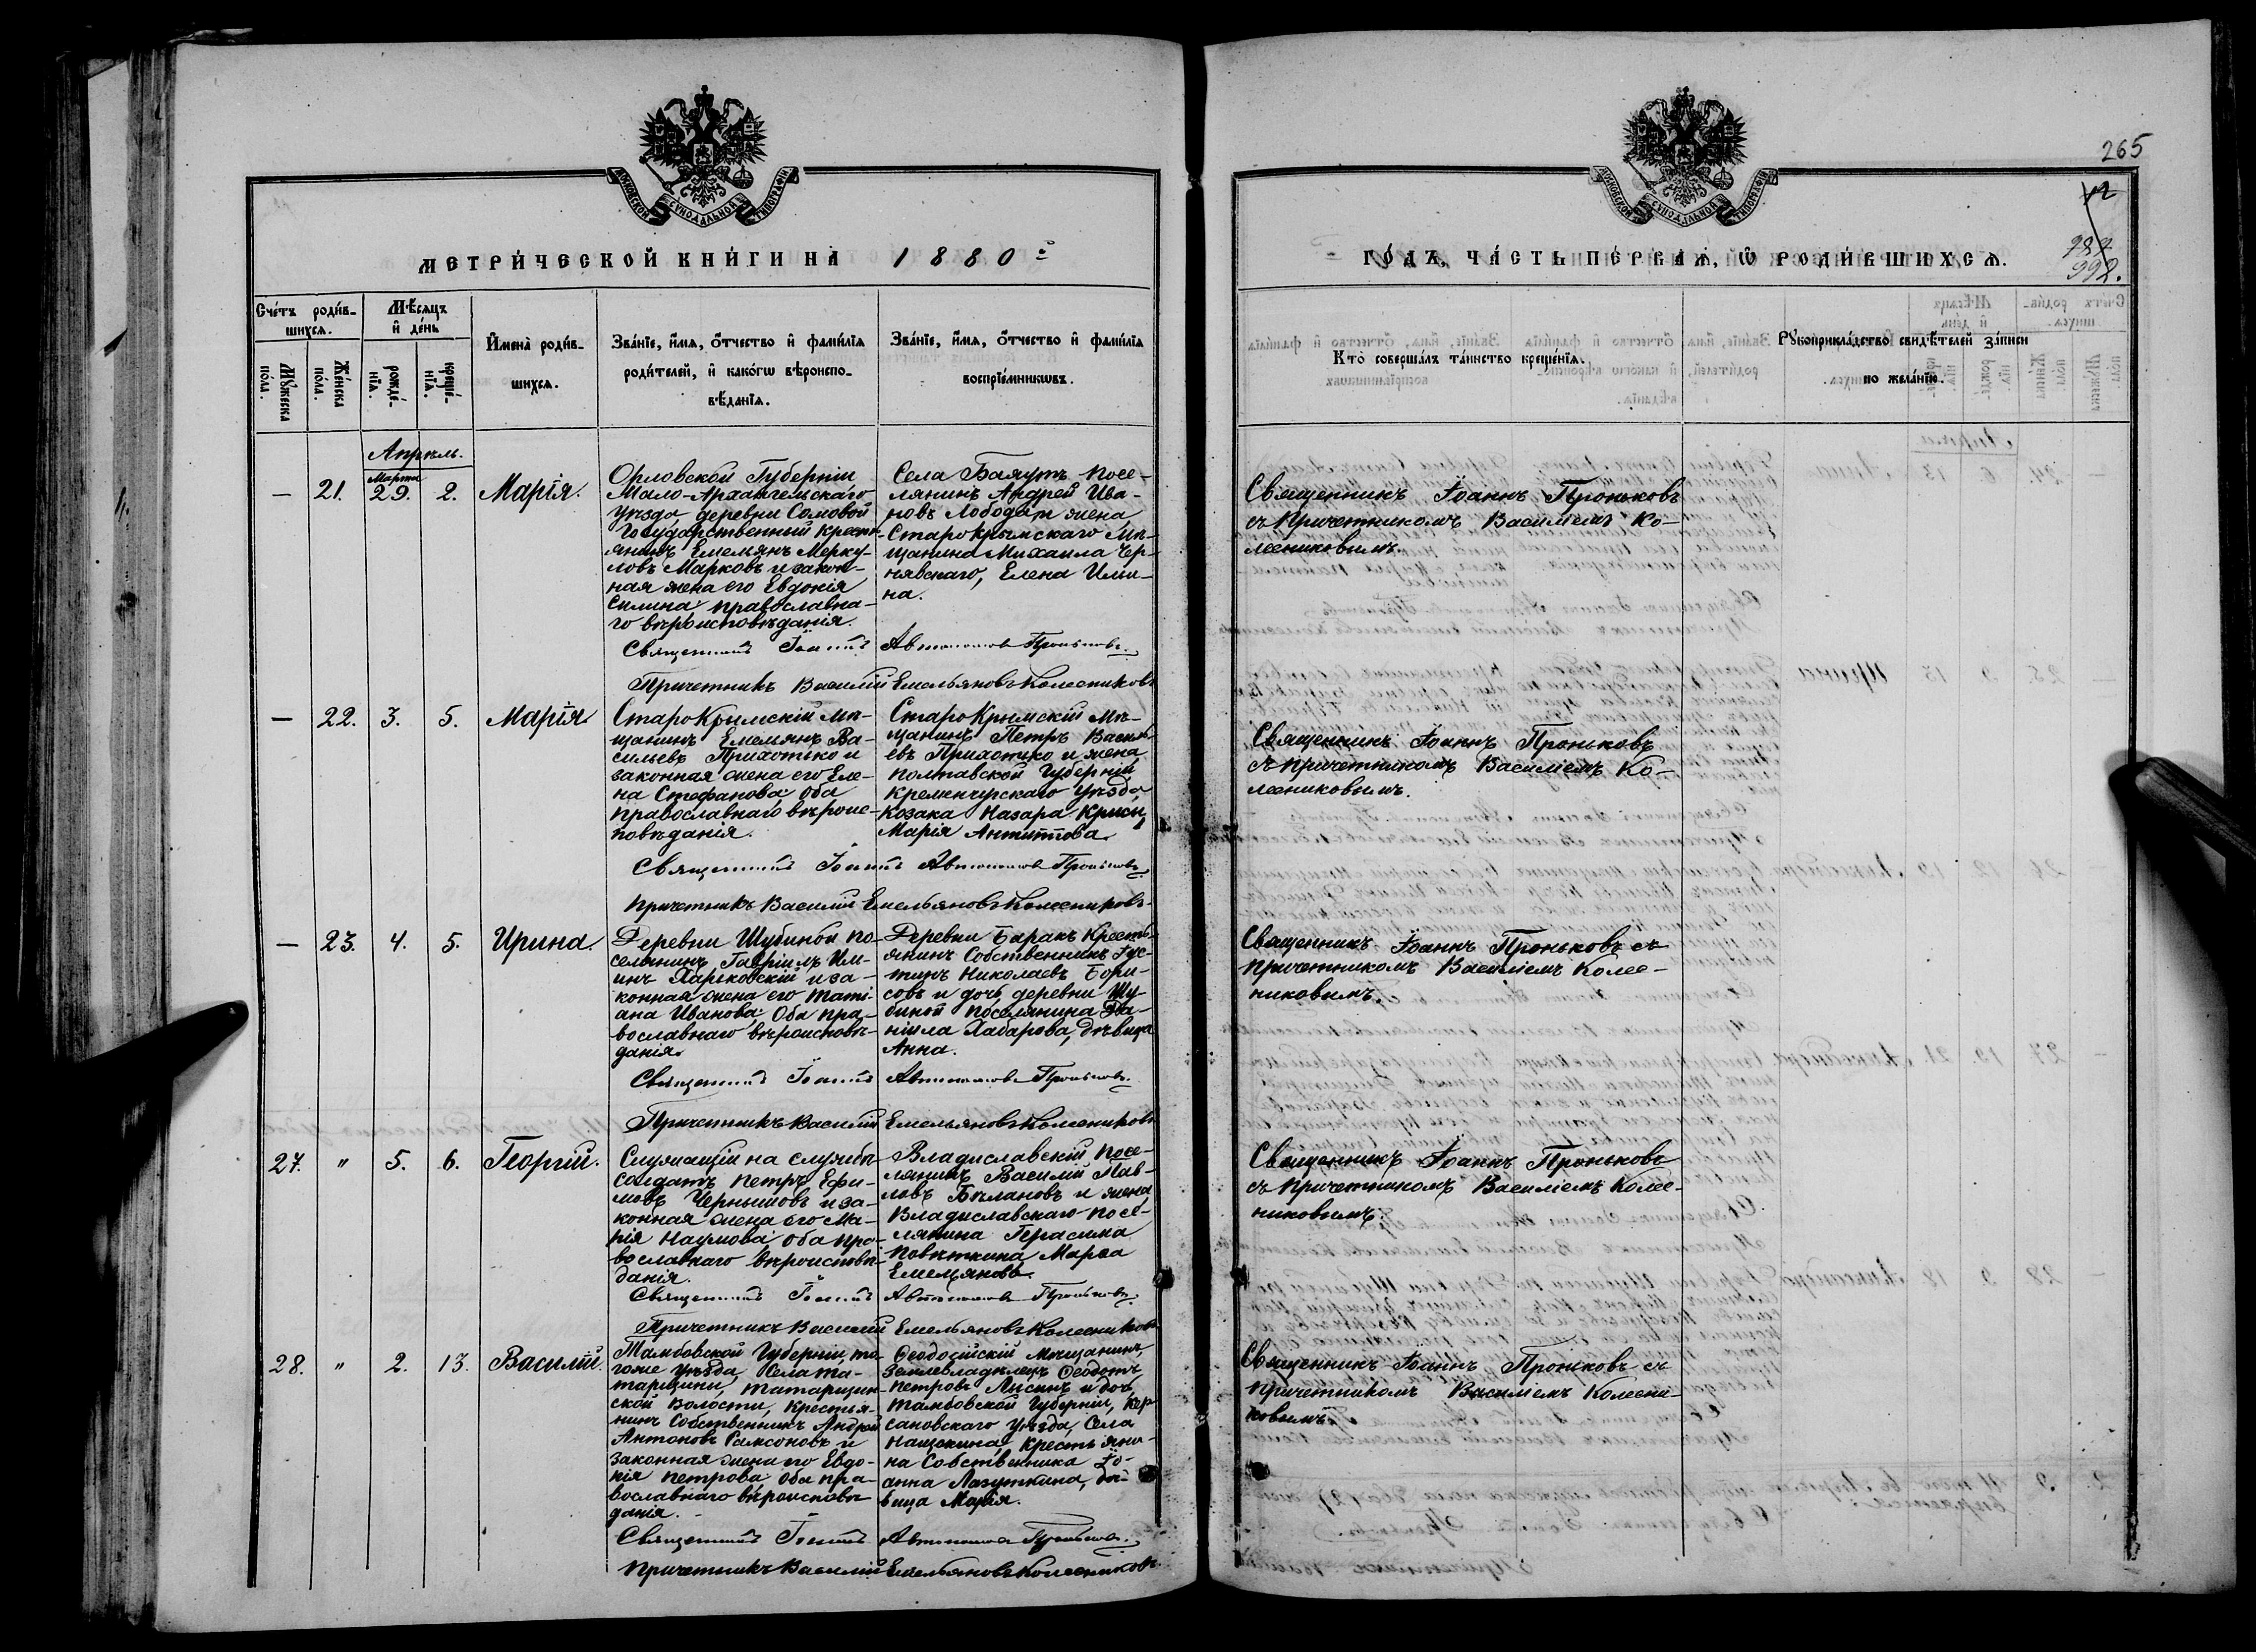 265
12
МОСКОВСКОЙ СѴНОДАЛЬНОЙ ТИПОГРАФІИ
МОСКОВСКОЙ СѴНОДАЛЬНОЙ ТИПОГРАФІИ
МЕТРИ́ЧЕСКОЙ КНИ́ГИ НА 1880й
ГО́ДЪ, ЧА́СТЬ ПЕ́РВАѦ, Ѡ РОДИ́ВШИХСѦ.
992.
Сче́тъ роди́вшихсѧ.
Мꙋ́жеска по́ла.
Же́нска по́ла.
Мѣ́сяцъ и҆ де́нь
рожде́нїѧ.
креще́нїѧ.
И҆мена̀ роди́вшихсѧ.
Зва́нїе, и҆́мѧ, ѻ҆́тчество и҆ фами́лїѧ
роди́телей, и҆ како́гѡ вѣроиспо-
вѣ́данїѧ.
Зва́нїе, и҆́мѧ, ѻ҆́тчество и҆ фами́лїѧ
воспрїе́мникѡвъ.
Кто̀ соверша́лъ та́инство креще́нїѧ.
Рꙋкоприкла́дство свидѣ́телей за́писи
по жела́нїю.
Апрѣль.
— 21. Марта 29. 2. Марія.
Орловской Губерніи
Мало-Архангельскаго
уѣзда деревни Сомовой
Государственный кресть-
янинъ Емельянъ Мерку-
ловъ Марковъ и закон-
ная жена его Евдокія
Силина православна-
го вѣроисповѣданія.
Села Баяутъ посе-
лянинъ Андрей Ива-
новъ Лобода, и жена
Старокрымскаго мѣ-
щанина Михаила Чер-
нявскаго, Елена Ильи-
на.
Священникъ Іоаннъ Проньковъ
съ Причетникомъ Василіемъ Ко-
лесниковымъ.
Священникъ Іоаннъ Автономовъ Проньковъ.
Причетникъ Василій Емельяновъ Колесниковъ
— 22. 3. 5. Марія
СтароКрымскій мѣ-
щанинъ Емельянъ Ва-
сильевъ Прихотько и
законная жена его Еле-
на Стефанова оба
православнаго вѣроис-
повѣданія.
СтароКрымскій мѣ-
щанинъ Петръ Василь-
евъ Прихотько и жена
полтавской Губерніи
Кременчугскаго уѣзда
козака Назара
Марія Антипова
Священникъ Іоаннъ Проньковъ
съ причетникомъ Василіемъ Ко-
лесниковымъ.
Священникъ Іоаннъ Автономовъ Проньковъ
Причетникъ Василій Емельяновъ Колесниковъ
— 23. 4. 5. Ирина
Деревни Шубиной по-
селянинъ Гавріилъ Иль-
инъ Харьковскій и за-
конная жена его Таті-
ана Иванова Оба пра-
вославнаго вѣроисповѣ-
данія.
Деревни Баракъ Кресть-
янинъ Собственникъ Іус-
тинъ Николаевъ Бори-
совъ и дочь деревни Шу-
биной поселянина Да-
ніила Хабарова, дѣвица
Анна.
Священникъ Іоаннъ Проньковъ съ
причетникомъ Василіемъ Колес-
никовымъ.
Священникъ Іоаннъ Автономовъ Проньковъ.
Причетникъ Василій Емельяновъ Колесниковъ
27. " 5. 6. Георгій.
Служащій на службѣ
солдатъ Петръ Ефи-
мовъ Чернышовъ и за-
конная жена его Ма-
рія Наумова оба пра-
вославнаго вѣроисповѣ-
данія.
Владиславскій посе-
лянинъ Василій Пав-
ловъ Бѣлановъ и жена
Владиславскаго посе-
лянина Герасима
Повѣткина Марѳа
Емельянова.
Священникъ Іоаннъ Проньковъ
съ причетникомъ Василіемъ Колес-
никовымъ.
Священникъ Іоаннъ Автономовъ Проньковъ.
Причетникъ Василий Емельяновъ Колесниковъ
28. " 2. 13. Василій.
Тамбовской Губерніи, то-
гоже уѣзда, села Та-
тарщины, Татарщин-
ской Волости, крестья-
нинъ Собственникъ Андрей
Антоновъ Самсоновъ и
законная жена его Евдо-
кія Петрова оба пра-
вославнаго вѣроисповѣ-
данія.
Ѳеодосійскій мѣщанинъ,
землевладѣлецъ Ѳеодотъ
Петровъ Лисинъ и дочь
Тамбовской Губерніи, Кир-
сановскаго уѣзда, Села
Нащекина, крестьяни-
на Собственника Іо-
анна Лазуткина, дѣ-
вица Марія.
Священникъ Іоаннъ Проньковъ съ
причетникомъ Василіемъ Колесни-
ковымъ.
Священникъ Іоаннъ Автономовъ Проньковъ.
Причетникъ Василій Емельяновъ Колесниковъ